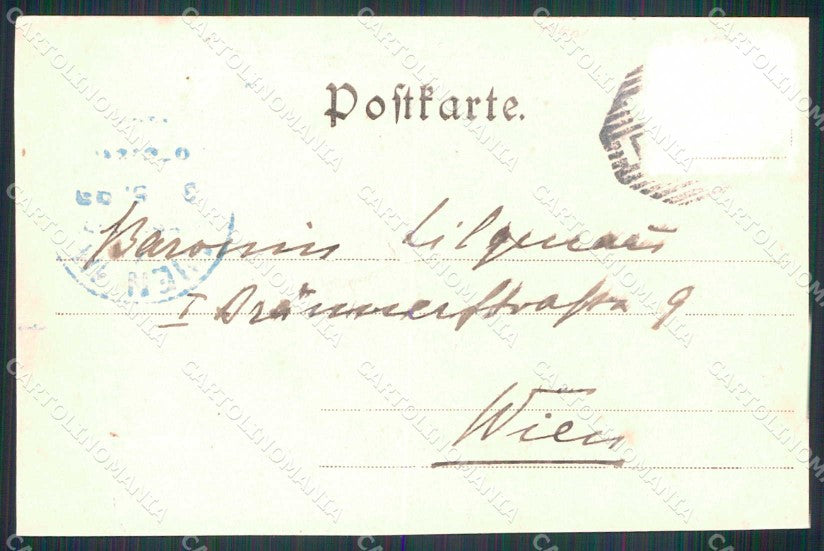 Postkarte.
Baronin Lilgenau
I Bräunerstraße 9
Wien
CARTOLINOMANIA